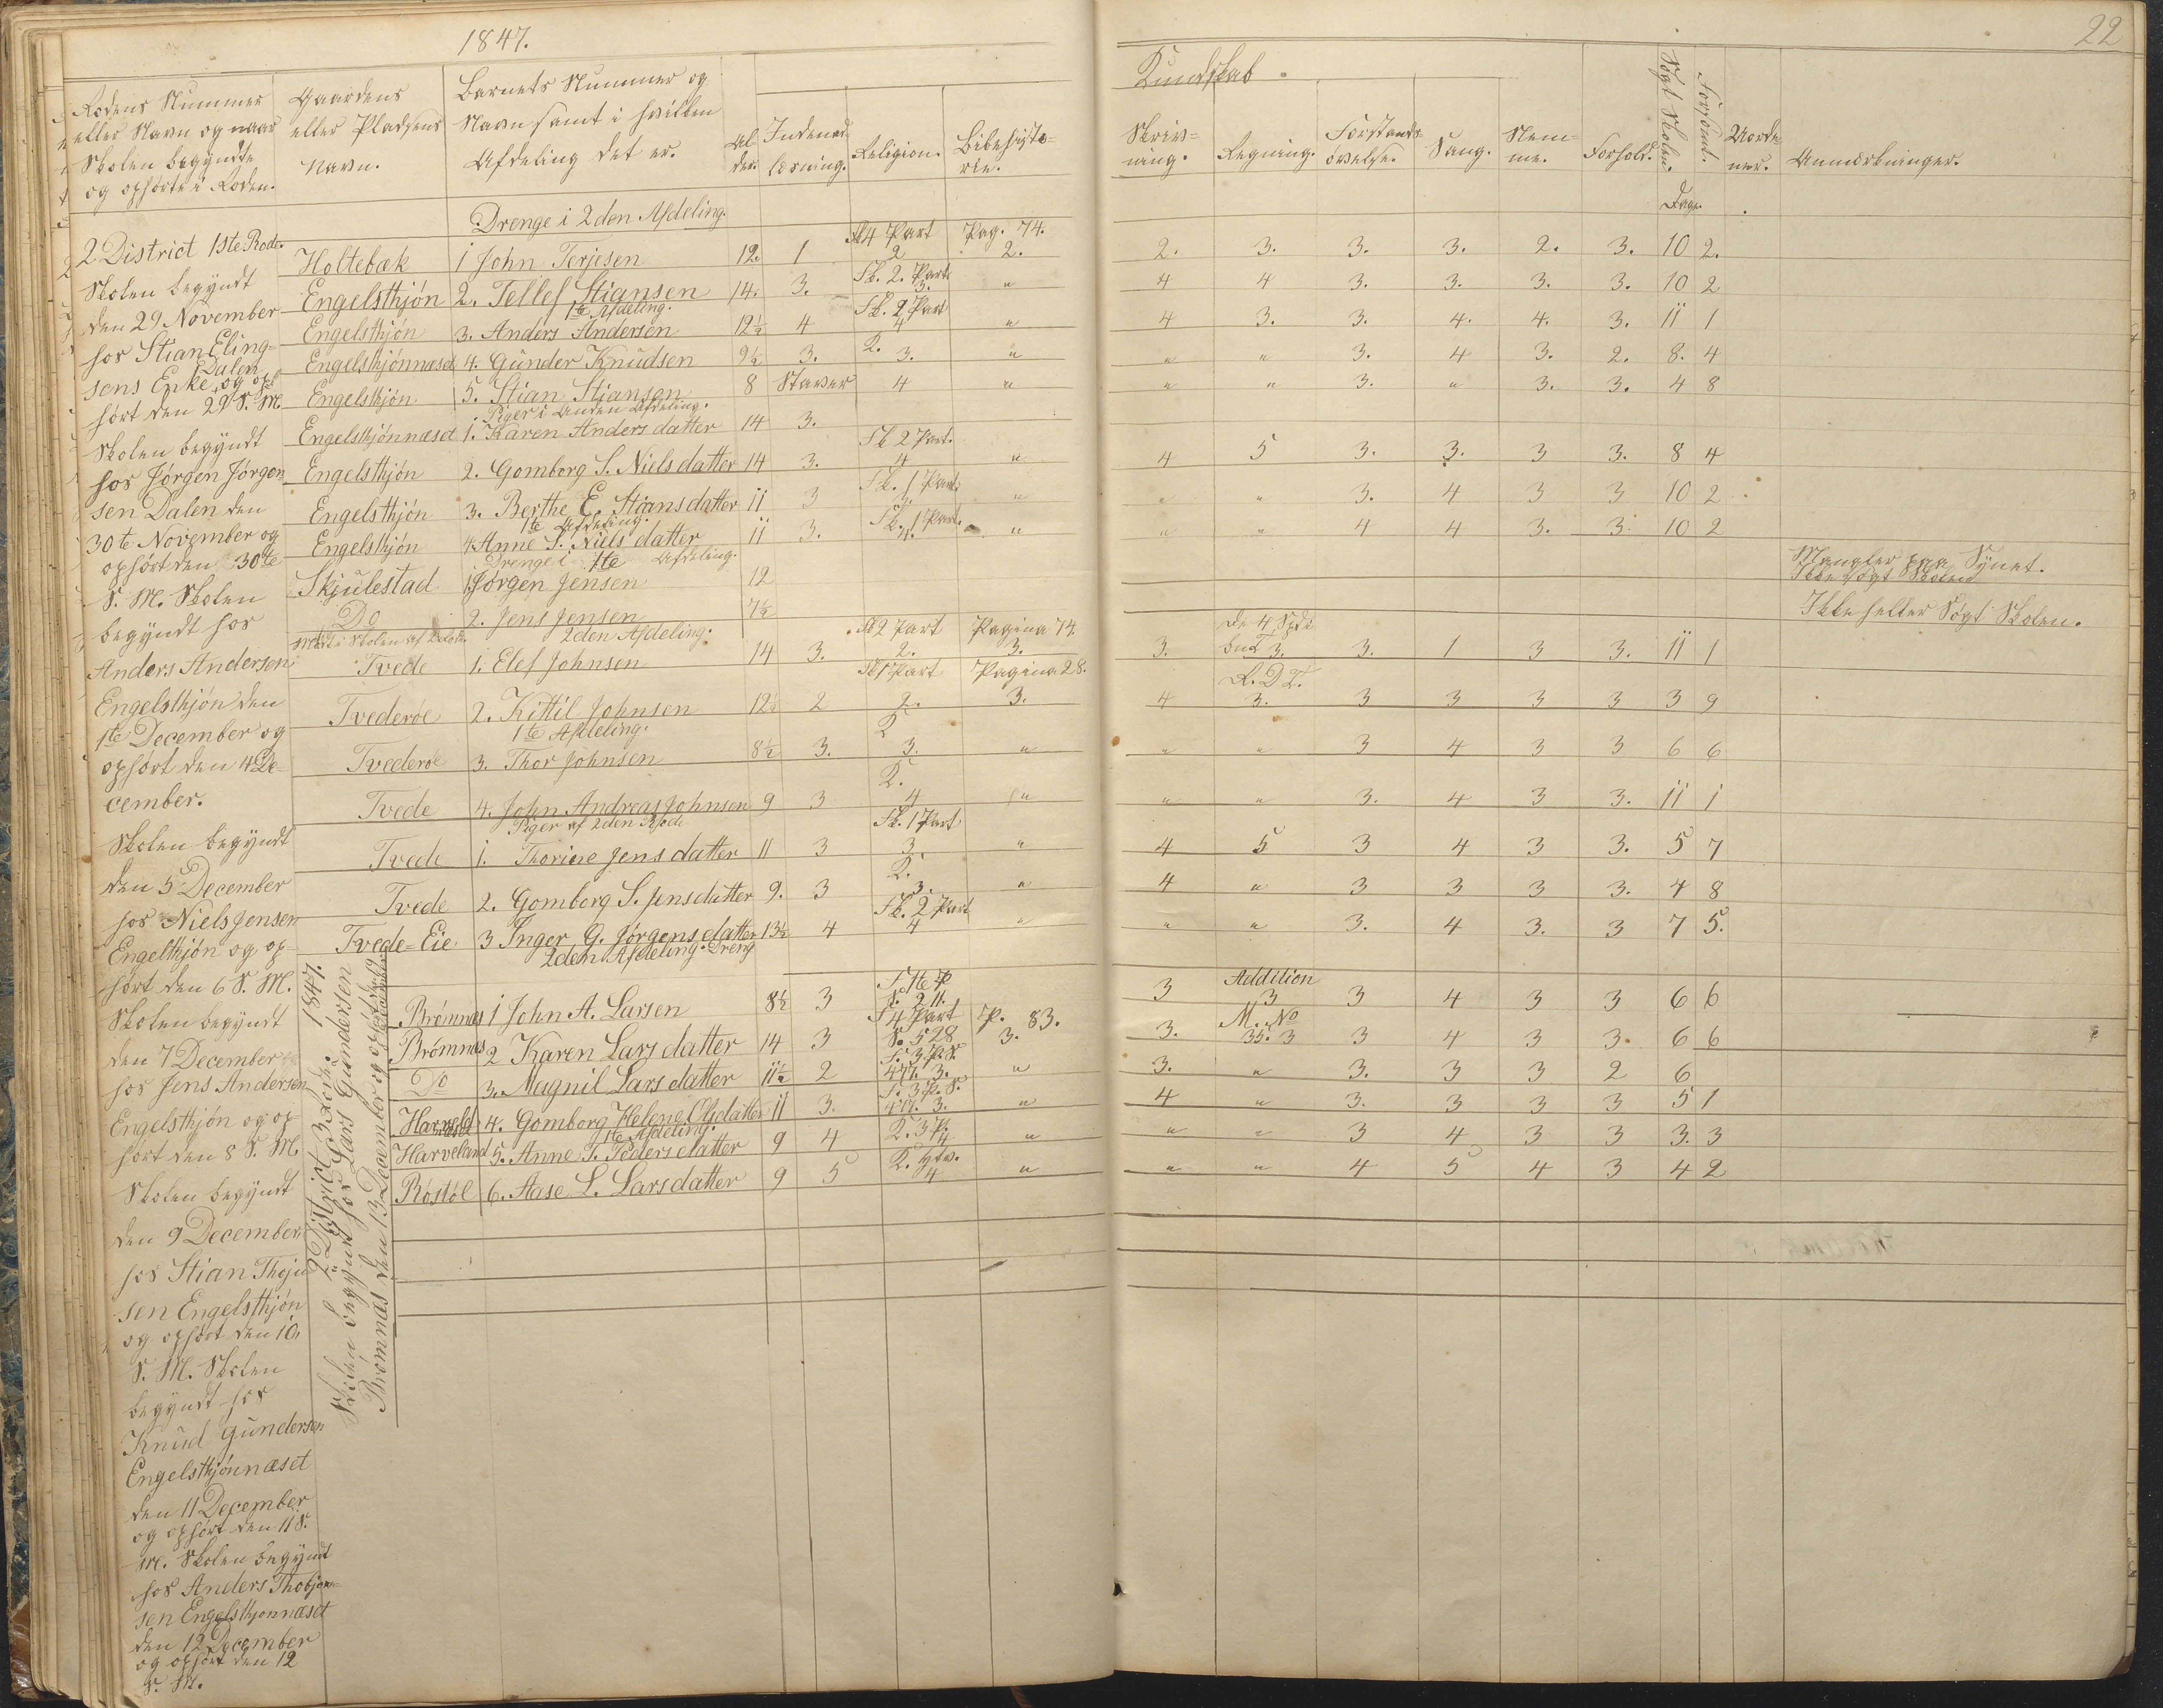 1847.
22
Rodens Nummer
eller Navn og naar
Skolen begyndte
og ophørte i Roden.
Gaardens
eller Pladsens
Navn.
Barnets Nummer og
Navn samt i hvilken
Afdeling det er.
Al
der.
Indenad
læsning.
Religion.
Bibelhisto-
rie.
Kundskab
Skriv-
ning.
Regning.
Forstands
øvelse.
Sang.
Nem-
me.
Forhold.
Søgt Skolen.
Forsømt.
Uorde-
ner.
Anmærkninger.
Dage
2 District 1ste Rode.
Skolen begyndt
den 29 November
hos Stian Eling-
Dalen
sens Enke og op-
hørt den 29 S. M.
Skolen begyndt
hos Jørgen Jørgen
sen Dalen den
30te November og
ophørt den 30te
S. M. Skolen
begyndt hos
Anders Andersen
Engelsthjøn den
1ste December og
ophørt den 4 De-
cember.
Skolen begyndt
den 5 December
hos Niels Jensen
Engelthjøn og op-
hørt den 6 S. M.
Skolen begyndt
den 7 December
hos Jens Andersen
Engelsthjøn og op-
hørt den 8 S. M.
Skolen begyndt
den 9 December
hos Stian Thoje
sen Engelsthjøn
og ophørt den 10.
S. M. Skolen
begyndt hos
Knud Gundersen
Engelsthjønnæset
den 11 December
og ophørt den 11 S.
M. Skolen begyndt
hos Anders Thobjørn-
sen Engelsthjønnæset
den 12 December
og ophørt den 12
S. M.
1847.
2 District 3 Rode.
Skolen begyndt hos Lars Gundersen
Brømnæs den 13 December og ophørt den
Drenge i 2den Afdeling.
Sk 4 Part Pag. 74.
Holtebæk 1 John Terjesen 12. 1 2 2. 2. 3. 3. 3. 2. 3. 10 2.
Sk. 2. Part.
Engelsthjøn 2. Tellef Stiansen 14. 3. 3. " 4 4 3. 3. 3. 3. 10 2
1te Afdeling. Sk. 2 Part
Engelsthjøn 3. Anders Andersen 12½ 4 4 " 4 3. 3. 4. 4. 3. 11 1
K.
Engelsthjønnæset 4. Gunder Knudsen 9½ 3. 3. " " " 3. 4 3. 2. 8. 4
Engelsthjøn 5. Stian Stiansen 8 Staver 4 " " " 3. " 3. 3. 4 8
Piger i Anden Afdeling.
Engelsthjønnæset 1. Karen Andersdatter 14 3.
Sk 2 Part.
Engelsthjøn 2. Gomborg S. Nielsdatter 14 3. 4 " 4 5 3. 3. 3 3. 8 4
Sk. 1 Part.
Engelsthjøn 3. Berthe E. Stiansdatter 11 3 3. " " " 3. 4 3 3 10 2
1te Afdeling. Sk. 1 Part.
Engelsthjøn 4 Anne S. Nielsdatter 11 3. 4. " " " 4 4 3. 3. 10 2
Drenge i 1te Afdeling.
Skjulestad 1 Jørgen Jensen 12 Mangler paa Synet.
Ikke søgt Skolen
Do 2. Jens Jensen 7½ Ikke heller Søgt Skolen.
2den Afdeling. Sk 2 Part Pagina 74. De 4 Spe
Tvede 1. Elef Johnsen 14 3. 2. 3. 3. 3. 3. 1 3 3. 11 1
Sk 1 Part Pagina 28. R. D T.
Tvederøe 2. Kittil Johnsen 12½ 2 2. 3. 4 3. 3 3 3 3 3 9
1te Afdeling. K
Tvederøe 3. Thor Johnsen 8½ 3. 3. " " " 3 4 3 3 6 6
K.
Tvede 4. John Andreas Johnsen 9 3 4 " " " 3. 4 3 3. 11 1
Piger af 2den Rode Sk. 1 Part
Tvede 1. Thorine Jensdatter 11 3 3 " 4 5 3 4 3 3. 5 7
K.
Tvede 2. Gomborg S. Jensdatter 9. 3 3. " 4 " 3 3 3 3. 4 8
Sk. 2 Part
Tvede-Eie 3 Inger G. Jørgensdatter 13½ 4 4 " " " 3. 4 3. 3 7 5.
2den Afdeling Dreng
Addition
Brømnæs 1 John A. Larsen 8½ 3 3 3 3 4 3 3 6 6
4 Part P. 83. M. No
Brømnæs 2 Karen Larsdatter 14 3 S. 528 3. 3. 35. 3 3 4 3 3. 6 6
Do 3. Magnil Larsdatter 11½ 2 3. " 3. " 3. 3 3 2 6
Harveland 4. Gomborg Helene Olsdatter 11 3. 3. " 4 " 3. 3 3 3 5 1
1te Afdeling. K. 3 P.
Harveland 5. Anne T. Pedersdatter 9 4 4 " " " 3 4 3 3 3. 3
Røstøl 6. Aase L. Larsdatter 9 5 4 " " " 4 5 4 3 4 2